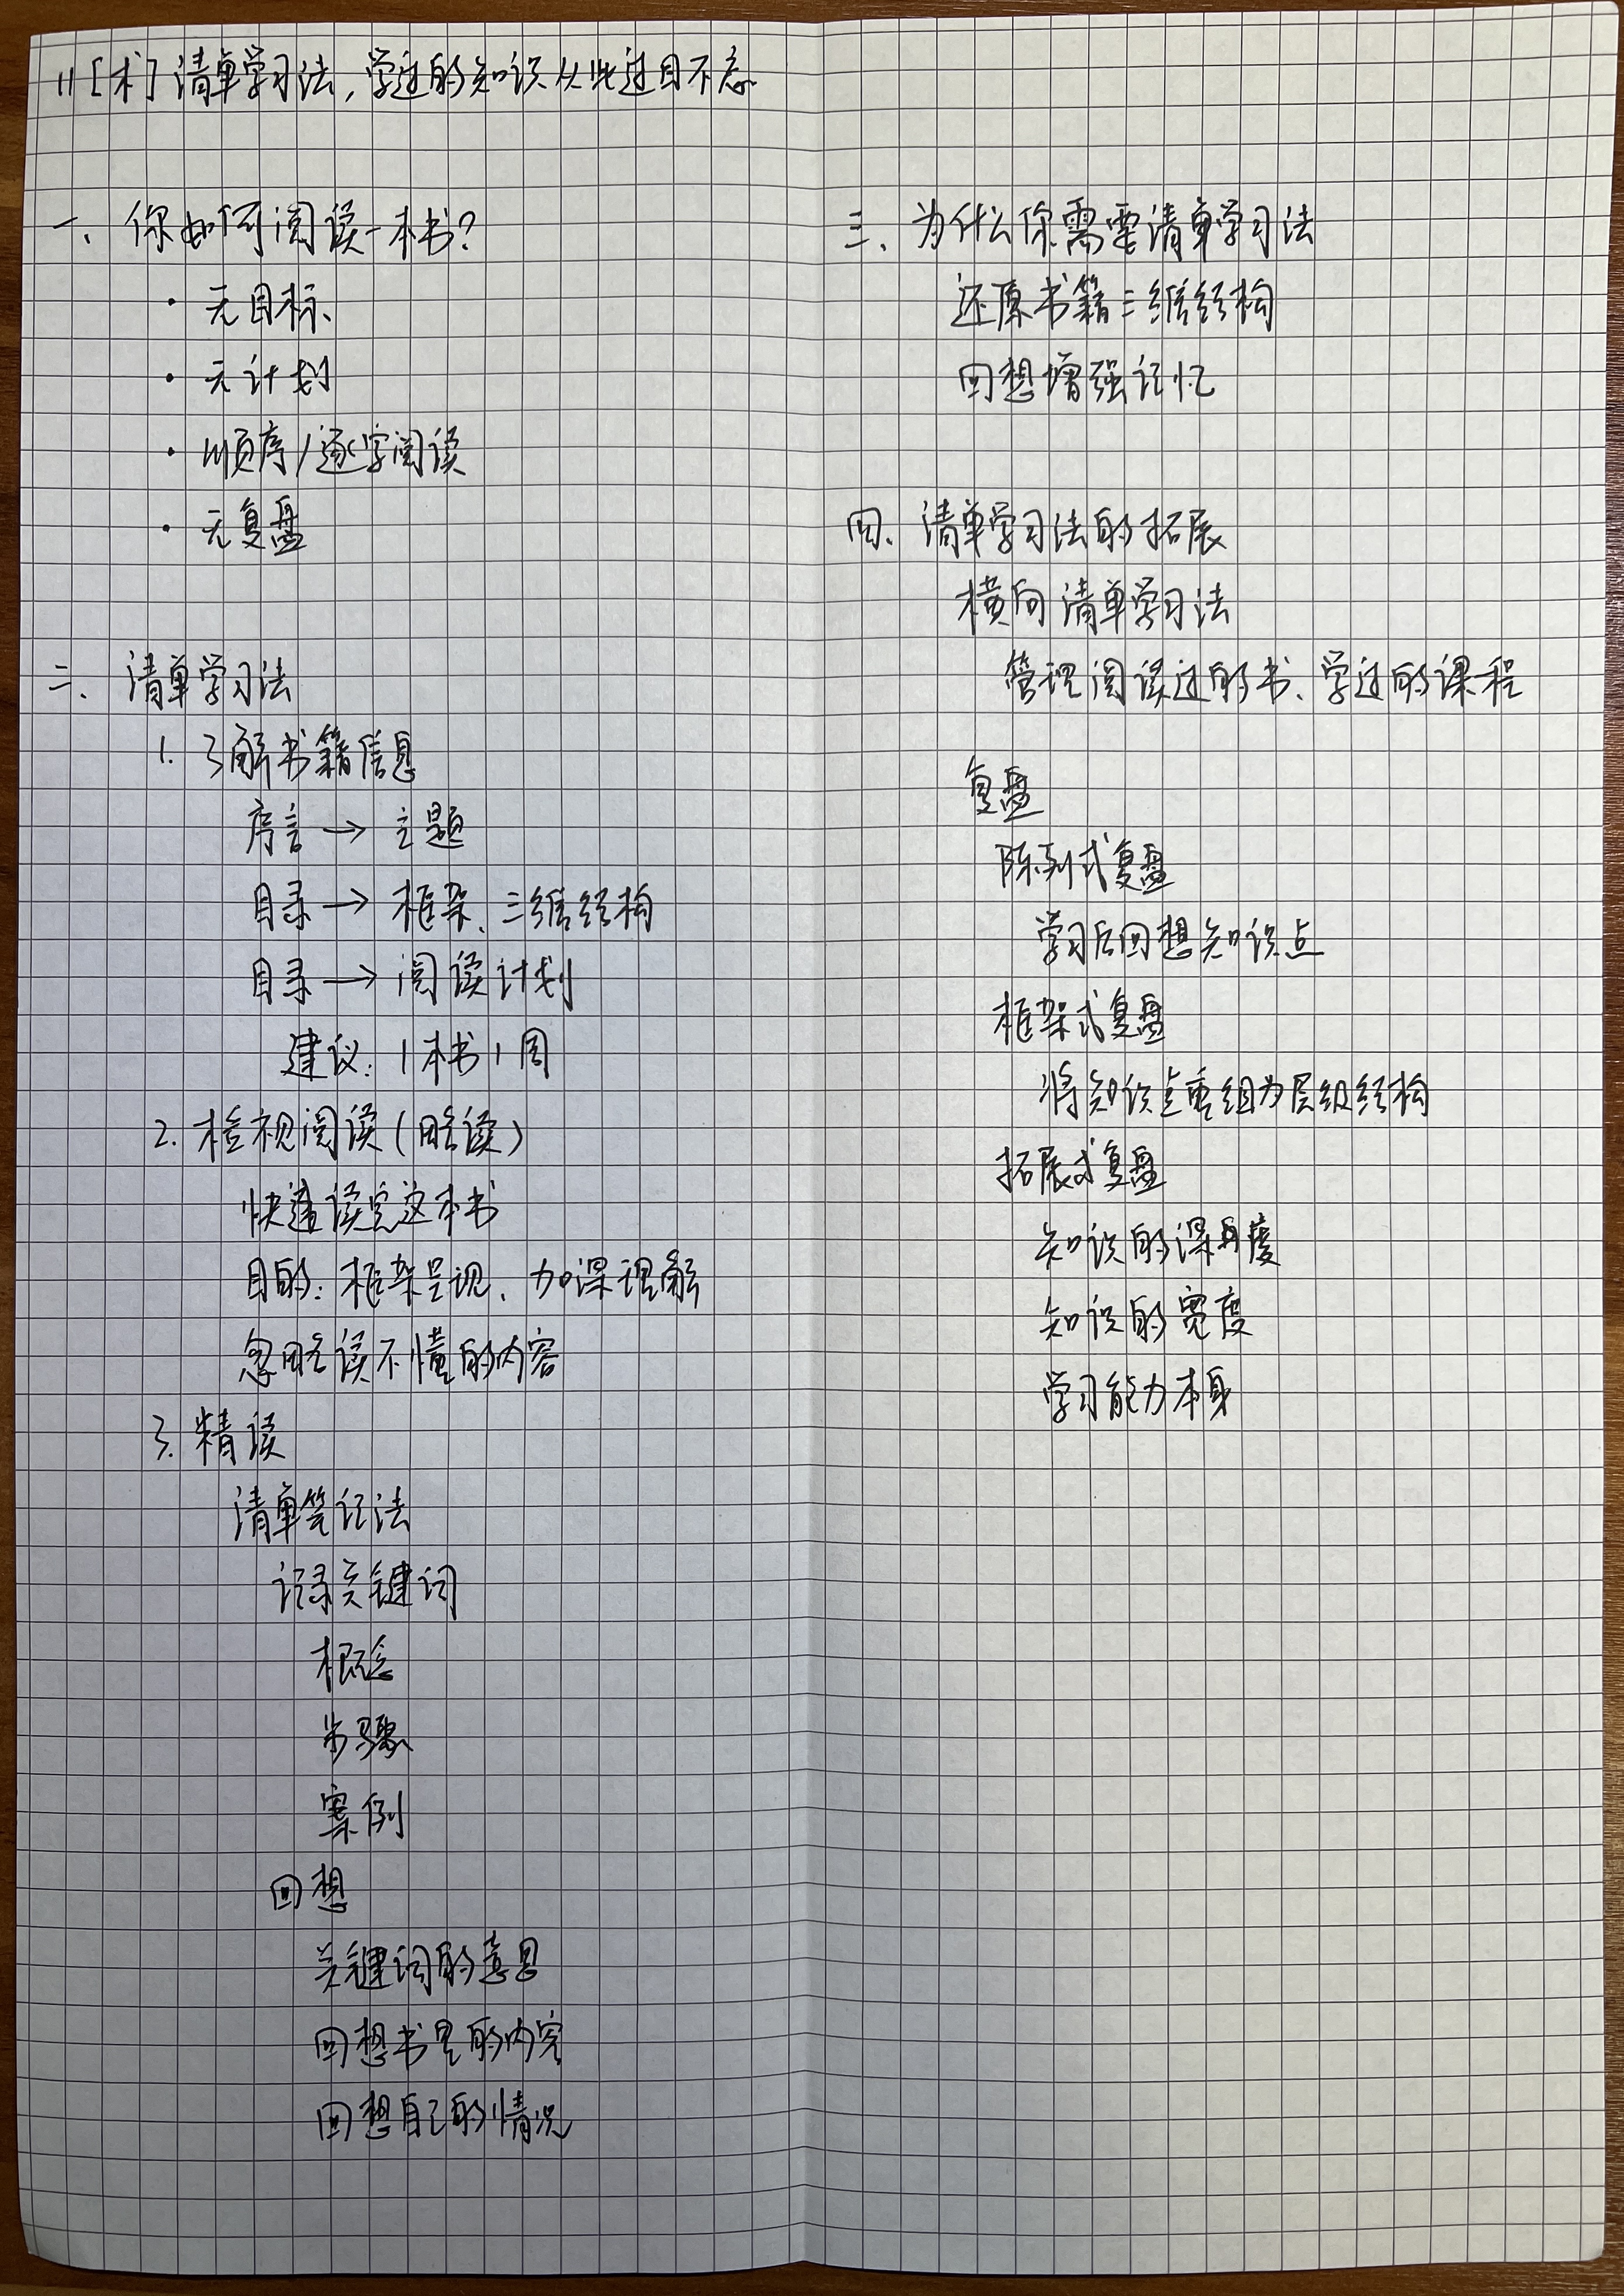 11 [术] 清单学习法,学过的知识从此过目不忘
一、你如何阅读一本书?
· 无目标
· 无计划
· 顺序/逐字阅读
· 无复盘
二、清单学习法
1. 了解书籍信息
序言 → 主题
目录 → 框架、三维结构
目录 → 阅读计划
建议:1本书1周
2. 检视阅读(略读)
快速读完这本书
目的:框架呈现、加深理解
忽略读不懂的内容
3. 精读
清单笔记法
记录关键词
概念
步骤
案例
回想
关键词的意思
回想书里的内容
回想自己的情况
三、为什么你需要清单学习法
还原书籍三维结构
回想增强记忆
四、清单学习法的拓展
横向清单学习法
管理阅读过的书、学过的课程
复盘
陈列式复盘
学习后回想知识点
框架式复盘
将知识点重组为层级结构
拓展式复盘
知识的深度
知识的宽度
学习能力本身